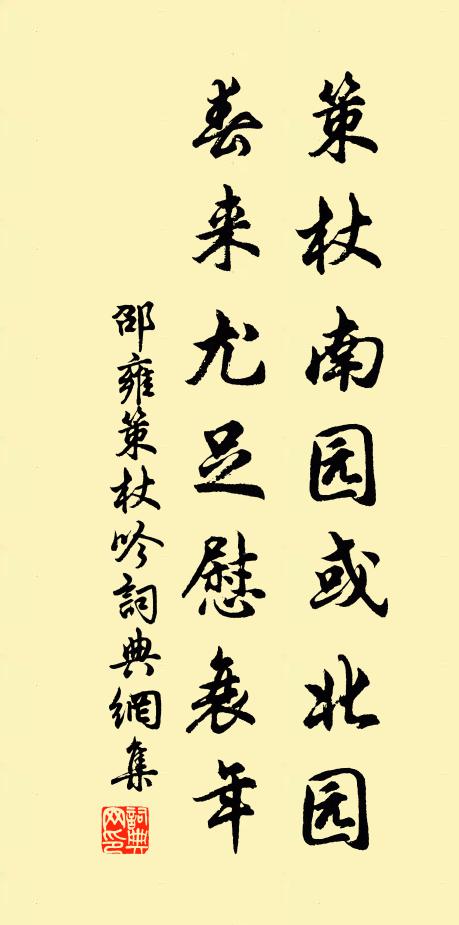 策杖南园或北园
春来尤足慰衰年
邵雍策杖吟詞典網集
詞典网印